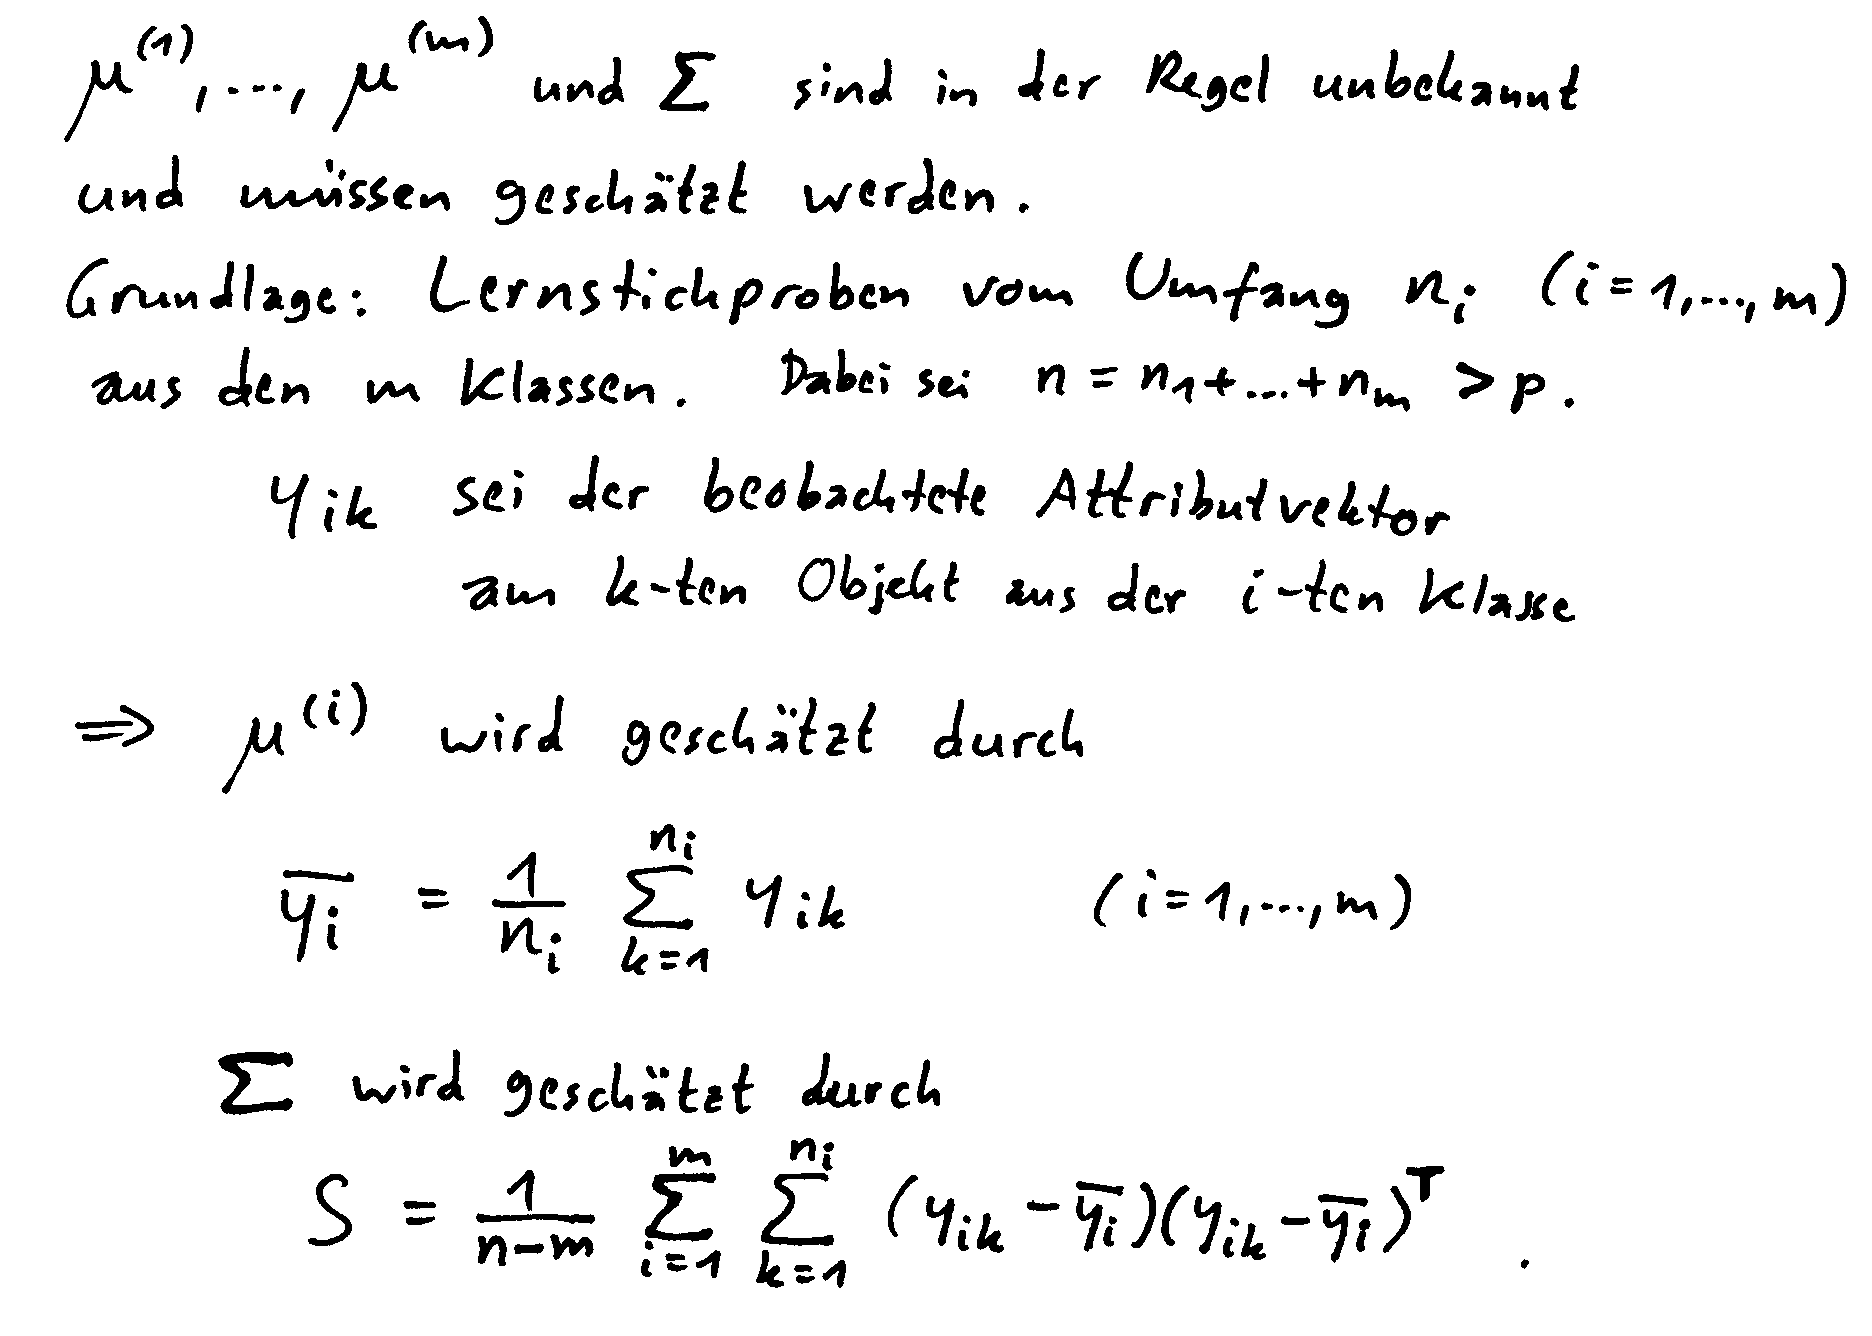 μ^(1), ..., μ^(m) und Σ sind in der Regel unbekannt
und müssen geschätzt werden.
Grundlage: Lernstichproben vom Umfang n_i (i = 1, ..., m)
aus den m Klassen. Dabei sei n = n_1 + ... + n_m > p.
y_ik sei der beobachtete Attributvektor
am k-ten Objekt aus der i-ten Klasse
⇒ μ^(i) wird geschätzt durch
\overline{y_i} = \frac{1}{n_i} \sum_{k=1}^{n_i} y_{ik} (i = 1, ..., m)
Σ wird geschätzt durch
S = \frac{1}{n-m} \sum_{i=1}^{m} \sum_{k=1}^{n_i} (y_{ik} - \overline{y_i})(y_{ik} - \overline{y_i})^T .